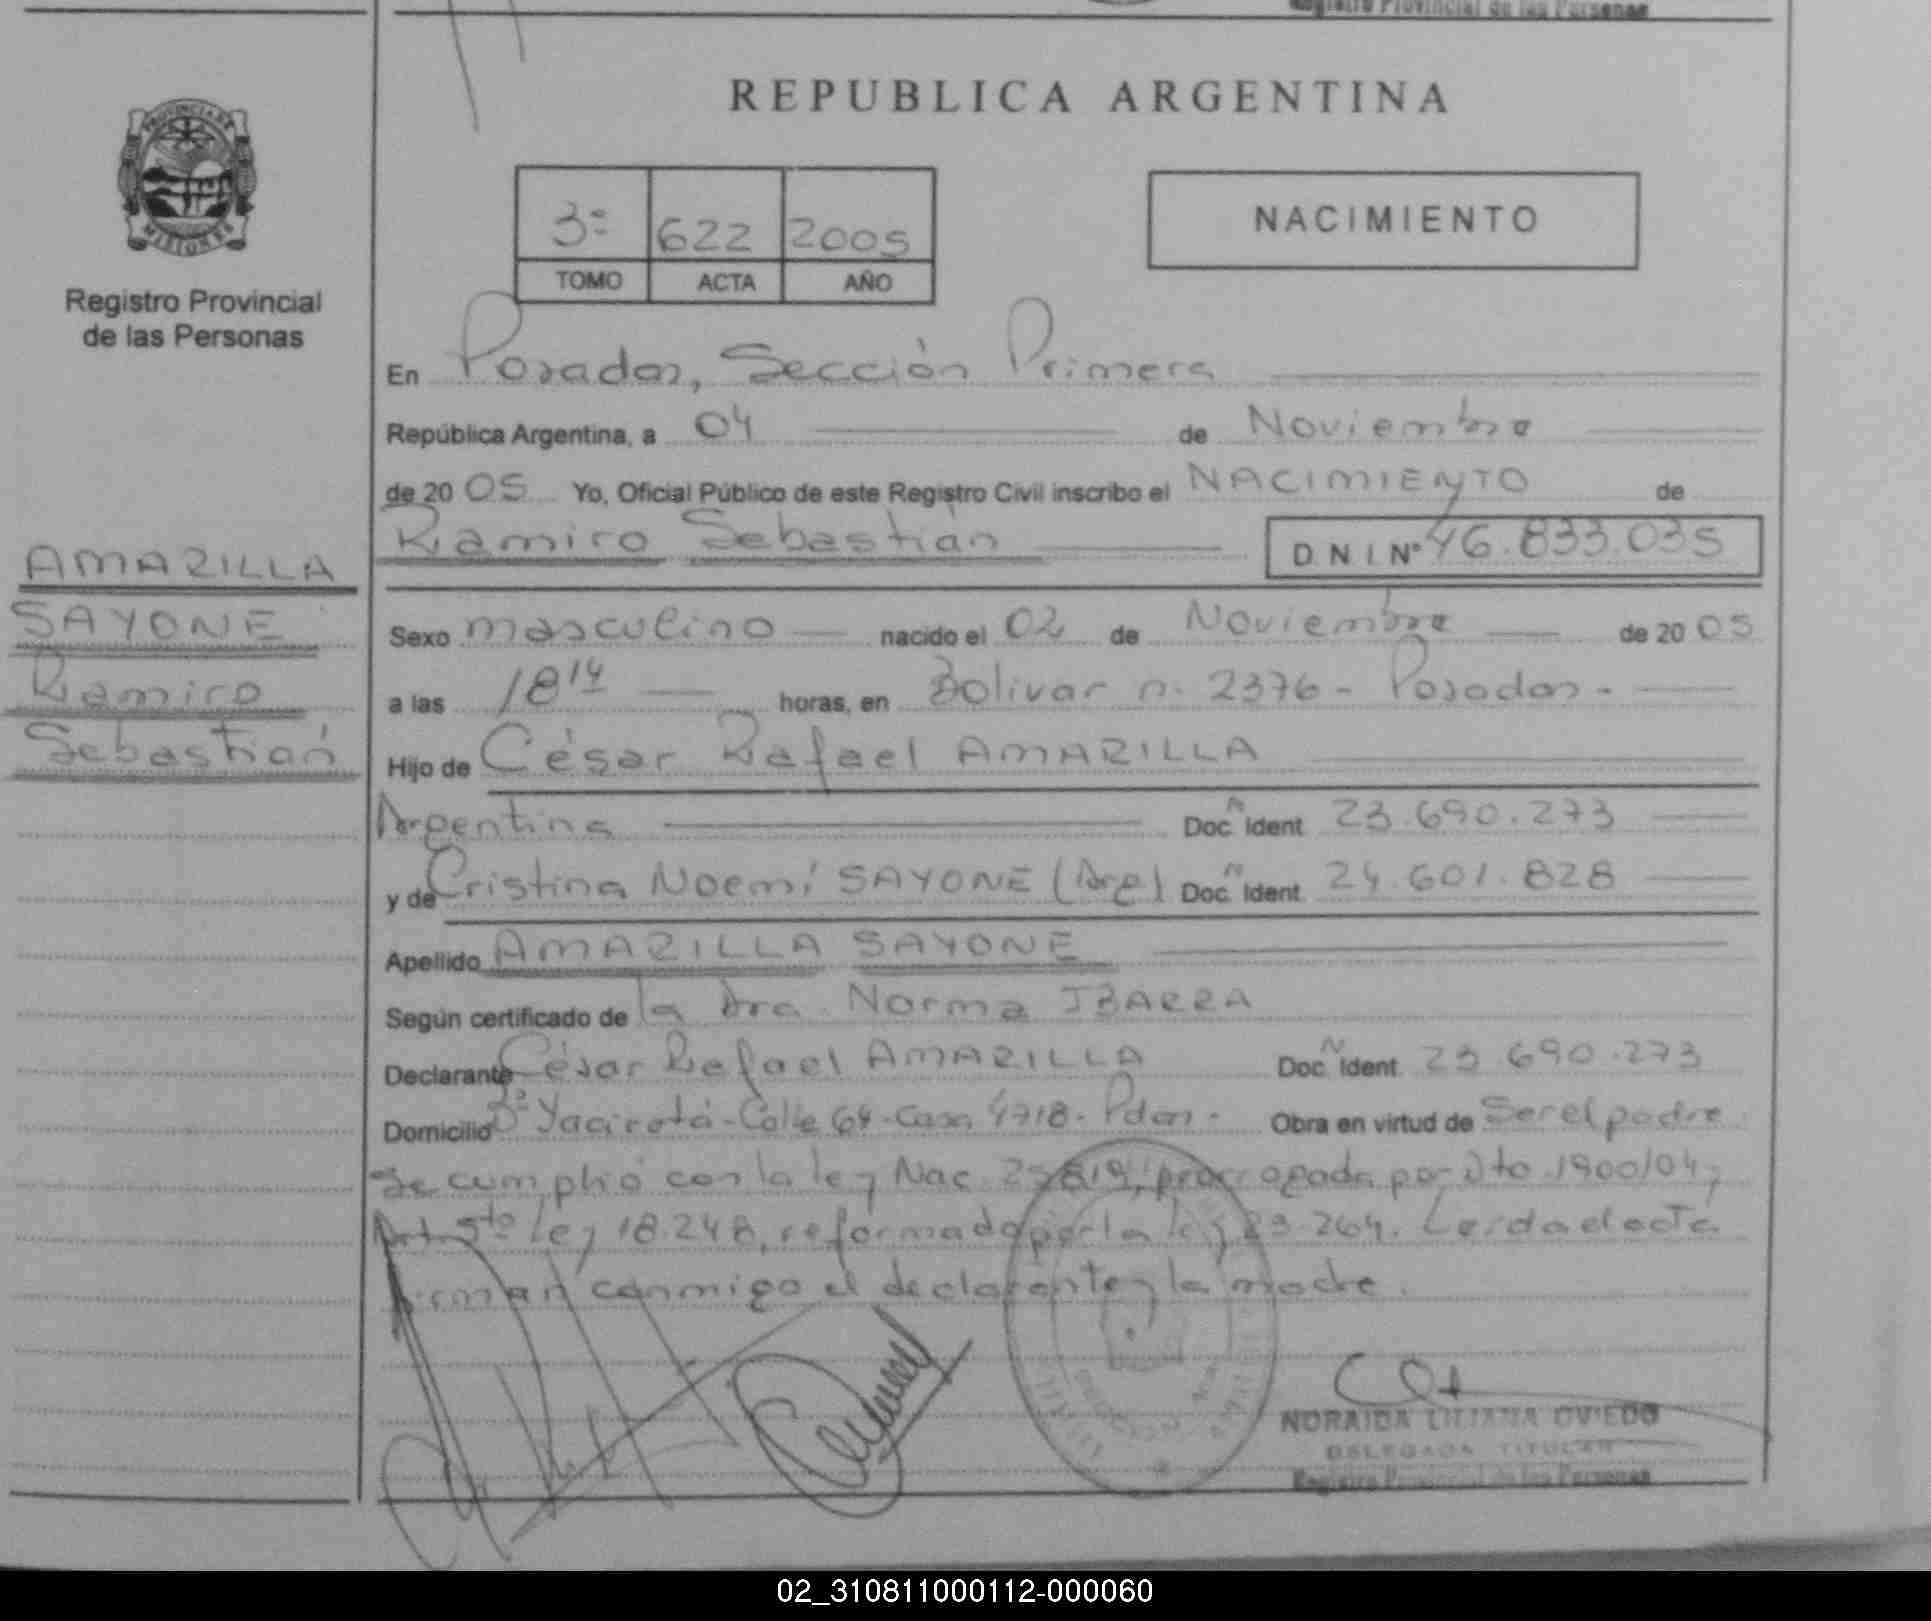 Registro Provincial de las Personas
PROVINCIA DE
MISIONES
Registro Provincial
de las Personas
AMARILLA
SAYONE
Ramiro
Sebastián
REPUBLICA ARGENTINA
3º 622 2005
TOMO ACTA AÑO
NACIMIENTO
En Posadas, Sección Primera
República Argentina, a 04 de Noviembre
de 2005 Yo, Oficial Público de este Registro Civil inscribo el NACIMIENTO de
Ramiro Sebastián D N I Nº 46.833.035
Sexo masculino nacido el 02 de Noviembre de 2005
a las 18 14 horas, en Bolivar n. 2376 - Posadas -
Hijo de César Rafael AMARILLA
Argentina Doc. N Ident 23.690.273
y de Cristina Noemí SAYONE (Arg) Doc. N Ident. 24.601.828
Apellido AMARILLA SAYONE
Según certificado de la Dra. Norma IBARRA
Declarante César Rafael AMARILLA Doc. N Ident. 23 690.273
Domicilio Bº Yaciretá - Calle 64 - Casa 4718 - Pdas - Obra en virtud de Ser el padre.
Se cumplió con la ley Nac. 25.819, prorrogada por Dto. 1900/04 y
Art. 5to ley 18.248, reformado por la ley 23.264. Leida el acta
firman conmigo el declarante y la madre.
NORAIDA LILIANA OVIEDO
DELEGADA TITULAR
Registro Provincial de las Personas
02_310811000112-000060